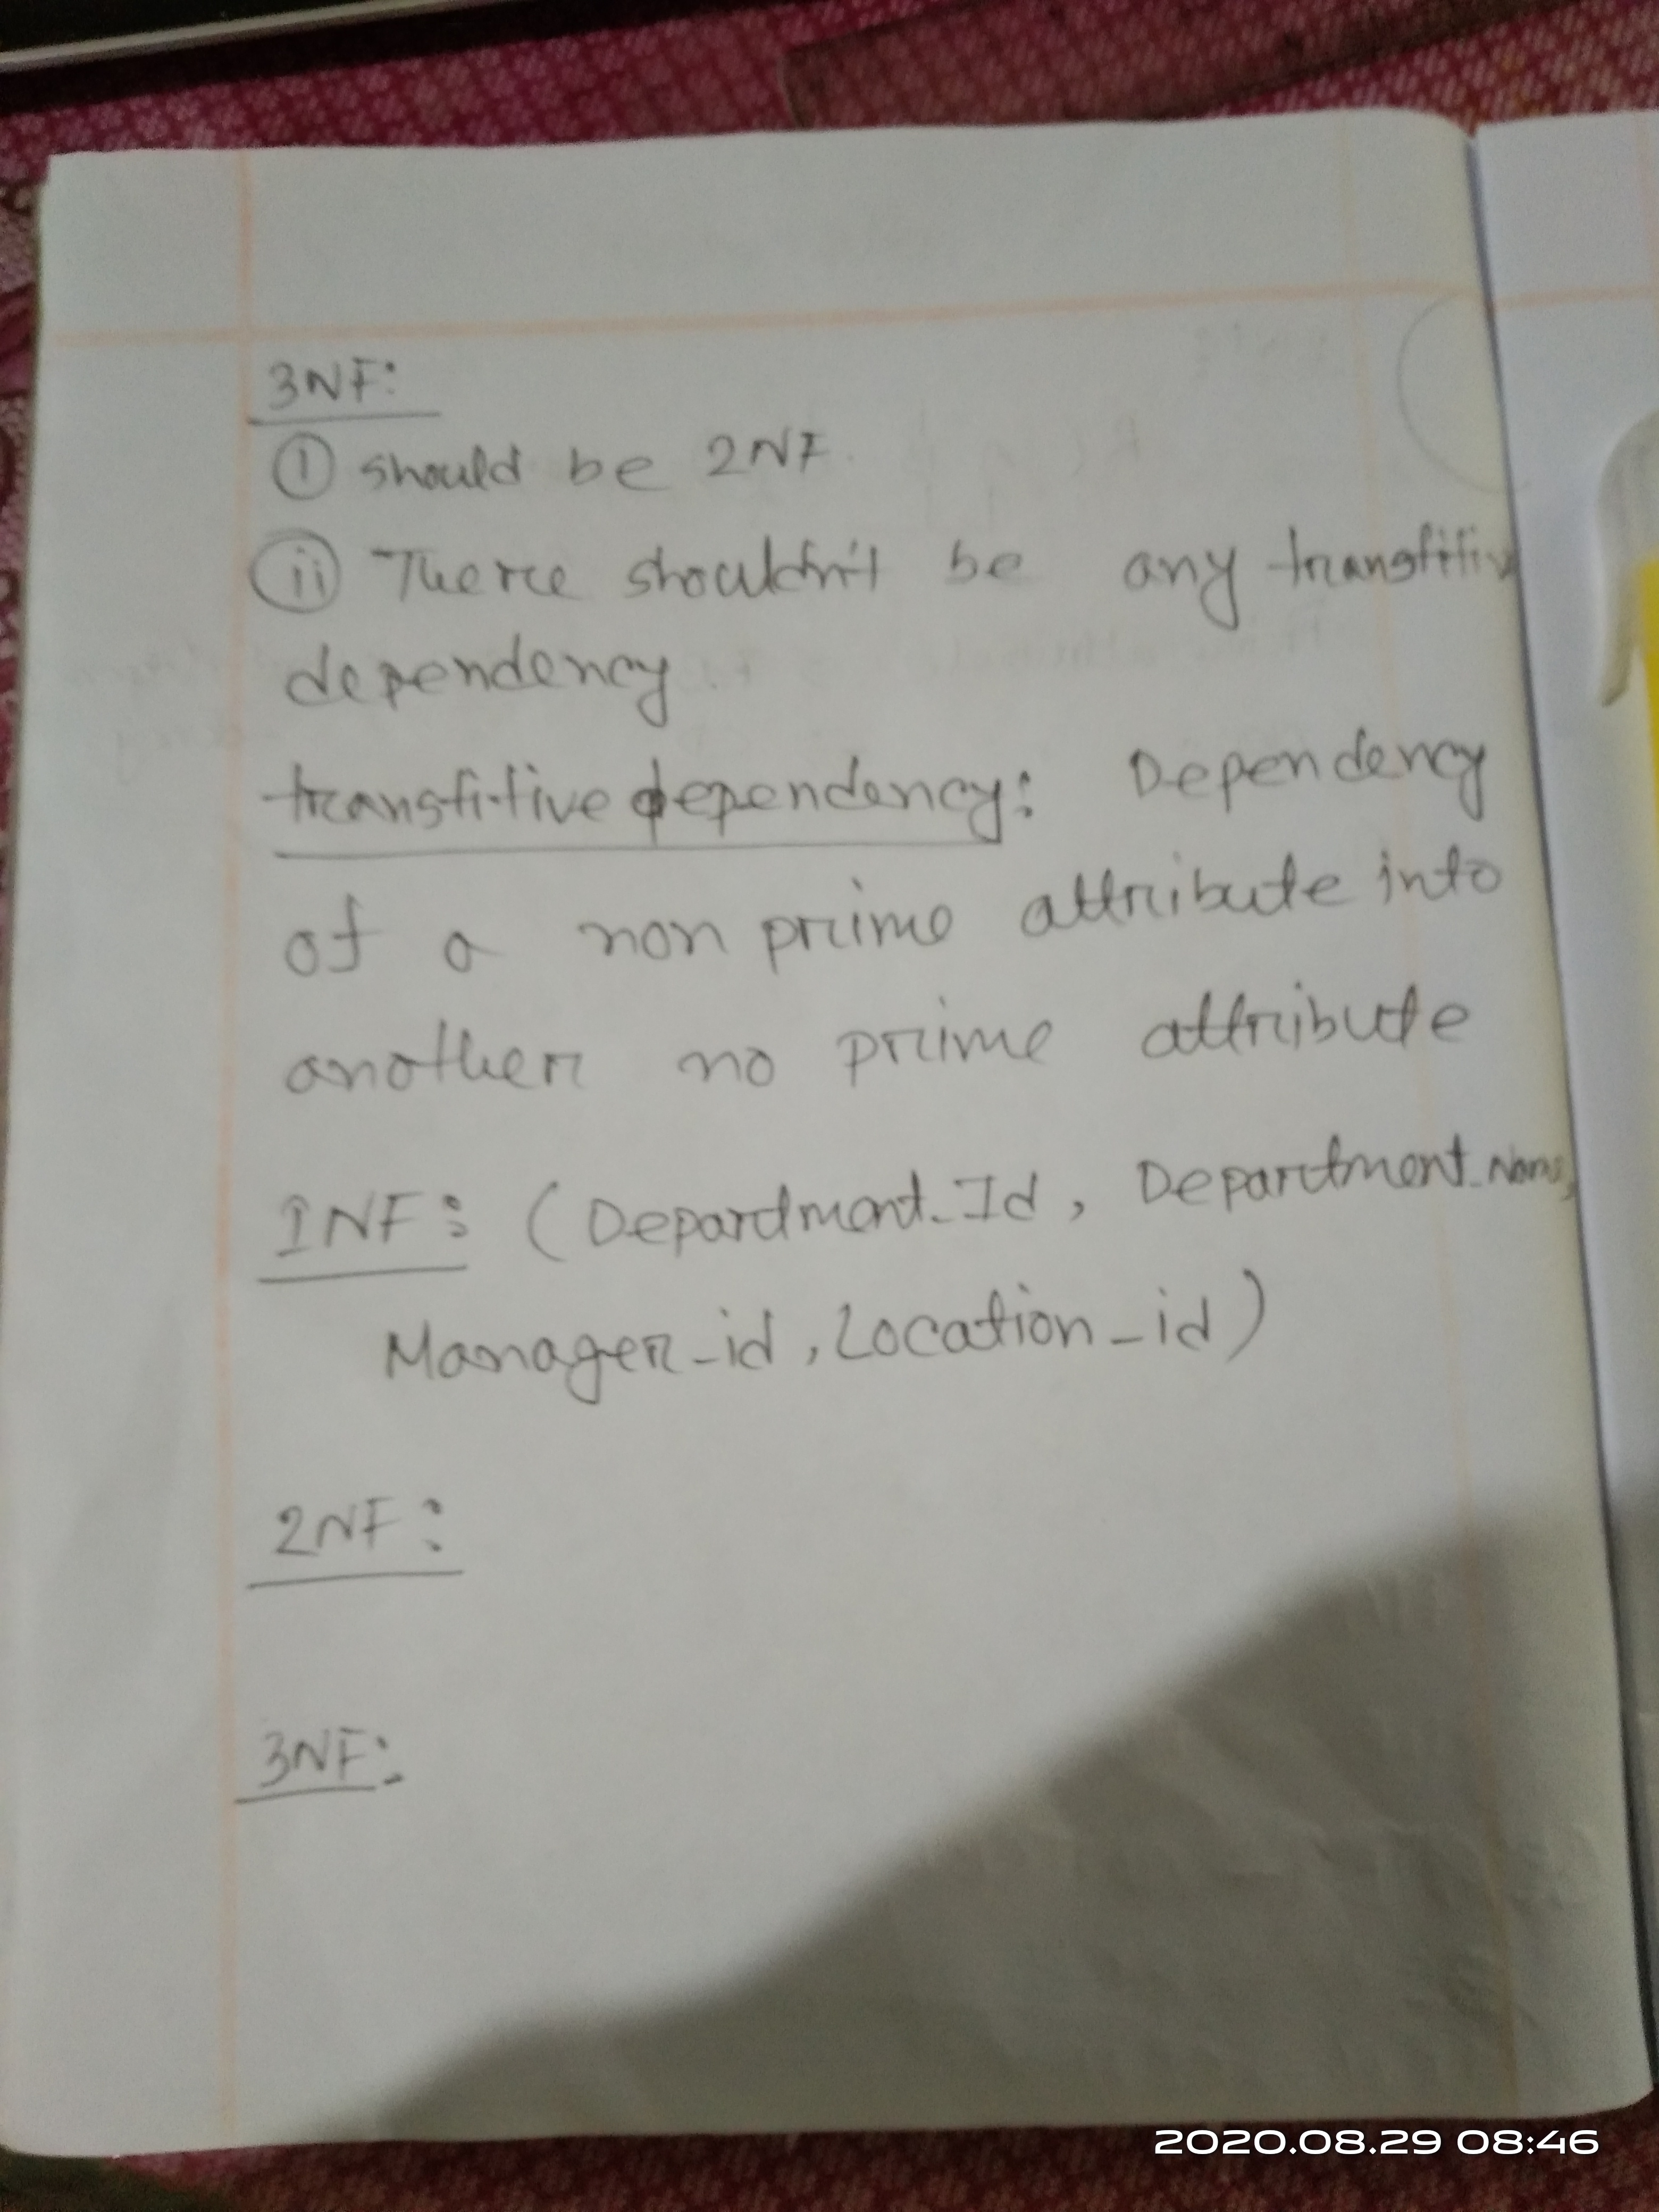 3NF:
① should be 2NF.
ⅱ There shouldn't be any transfitive
dependency
transfitive dependency: Dependency
of a non prime attribute into
another no prime attribute
1NF: (Department_Id, Department_Name,
Manager_id, Location_id)
2NF:
3NF:
2020.08.29 08:46